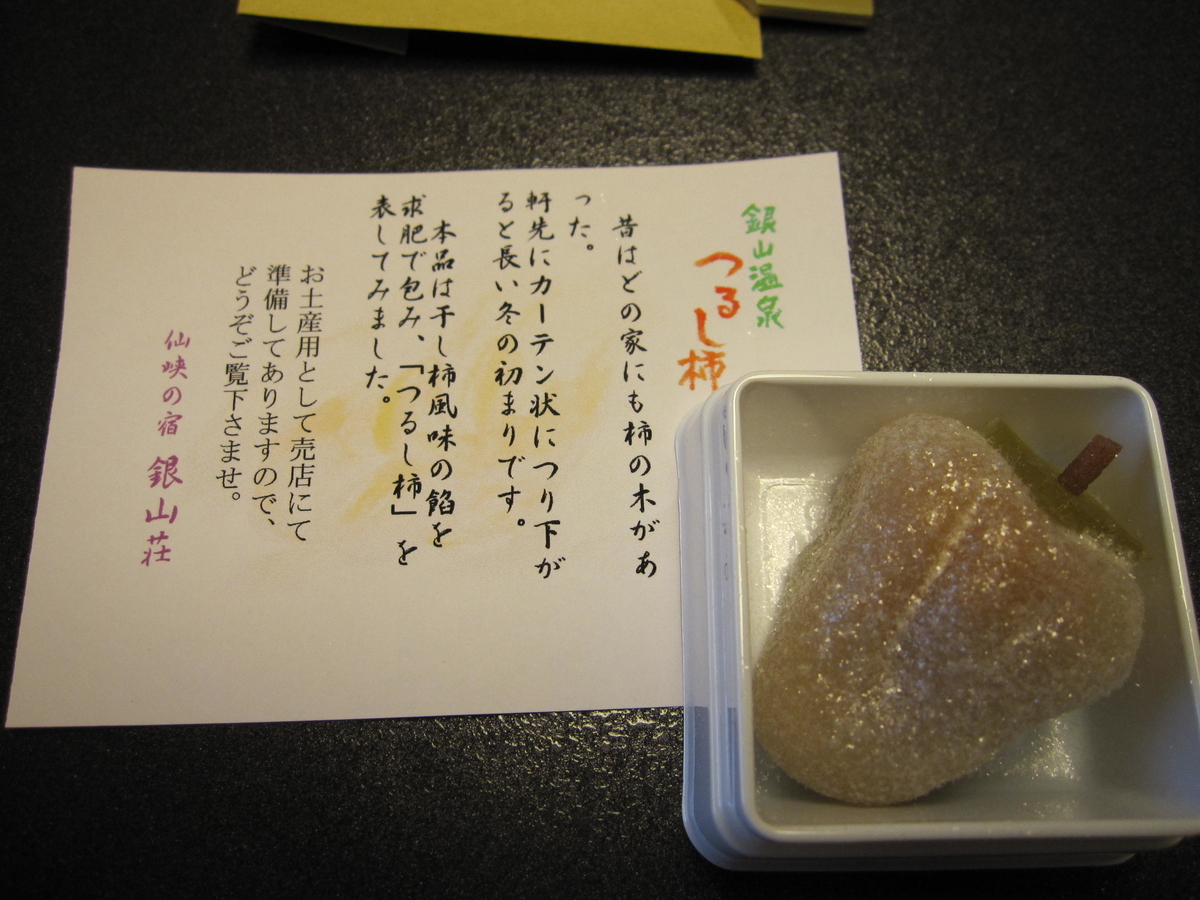 銀山温泉
つるし柿
昔はどの家にも柿の木があ
った。
軒先にカーテン状につり下が
ると長い冬の初まりです。
本品は干し柿風味の餡を
求肥で包み、「つるし柿」を
表してみました。
お土産用として売店にて
準備してありますので、
どうぞご覧下さませ。
仙峡の宿 銀山荘